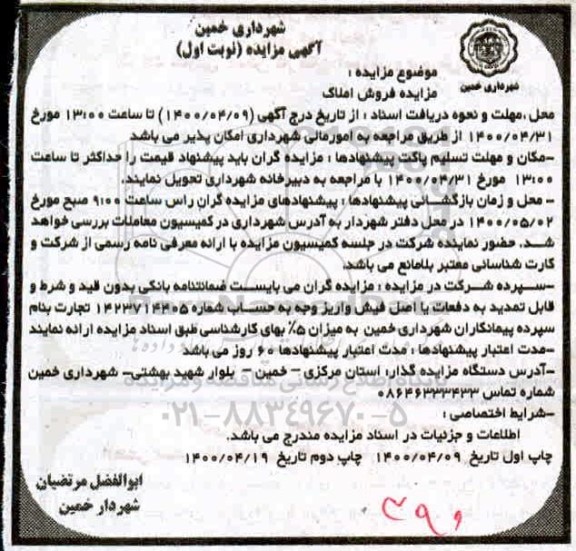 شهرداری خمین
آگهی مزایده (نوبت اول)
شهرداری خمین
موضوع مزایده :
مزایده فروش املاک
محل ،مهلت و نحوه دریافت اسناد : از تاریخ درج آگهی (۱۴۰۰/۰۴/۰۹) تا ساعت ۱۳:۰۰ مورخ
۱۴۰۰/۰۴/۳۱ از طریق مراجعه به امورمالی شهرداری امکان پذیر می باشد
-مکان و مهلت تسلیم پاکت پیشنهادها : مزایده گران باید پیشنهاد قیمت را حداکثر تا ساعت
۱۳:۰۰ مورخ ۱۴۰۰/۰۴/۳۱ با مراجعه به دبیرخانه شهرداری تحویل نمایند.
- محل و زمان بازگشائی پیشنهادها : پیشنهادهای مزایده گران راس ساعت ۹:۰۰ صبح مورخ
۱۴۰۰/۰۵/۰۲ در محل دفتر شهردار به آدرس شهرداری در کمیسیون معاملات بررسی خواهد
شد. حضور نماینده شرکت در جلسه کمیسیون مزایده با ارائه معرفی نامه رسمی از شرکت و
کارت شناسائی معتبر بلامانع می باشد.
-سپرده شرکت در مزایده : مزایده گران می بایست ضمانتنامه بانکی بدون قید و شرط و
قابل تمدید به دفعات یا اصل فیش واریز وجه به حساب شماره ۱۴۲۳۷۱۴۴۰۵ تجارت بنام
سپرده پیمانکاران شهرداری خمین به میزان ۵٪ بهای کارشناسی طبق اسناد مزایده ارائه نمایند
-مدت اعتبار پیشنهادها : مدت اعتبار پیشنهادها ۶۰ روز می باشد
-آدرس دستگاه مزایده گذار: استان مرکزی – خمین – بلوار شهید بهشتی– شهرداری خمین
شماره تماس ۰۸۶۴۶۳۳۳۴۳۳
۰۲۱-۸۸۳۴۹۶۷۰-۵
-شرایط اختصاصی :
اطلاعات و جزئیات در اسناد مزایده مندرج می باشد.
چاپ اول تاریخ ۱۴۰۰/۰۴/۰۹ چاپ دوم تاریخ ۱۴۰۰/۰۴/۱۹
ابوالفضل مرتضیان
شهردار خمین